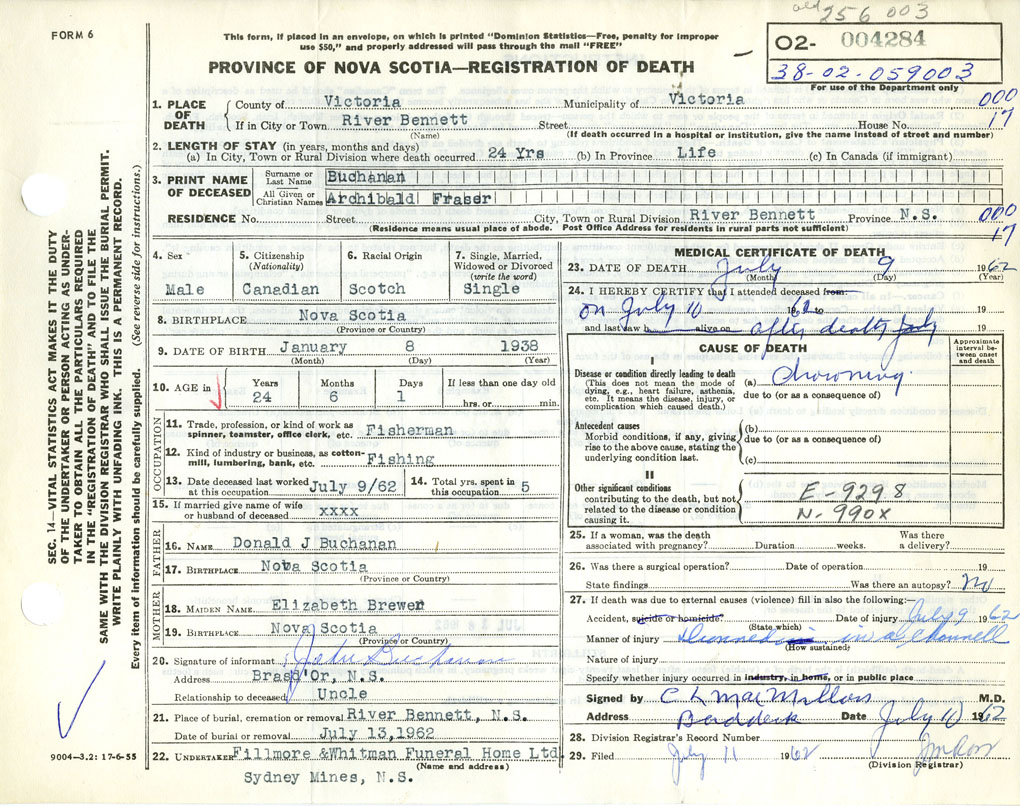 old 256 003
FORM 6
This form, if placed in an envelope, on which is printed "Dominion Statistics—Free, penalty for improper
use $50," and properly addressed will pass through the mail "FREE"
02- 004284
38-02-059003
For use of the Department only
PROVINCE OF NOVA SCOTIA—REGISTRATION OF DEATH
SEC. 14—VITAL STATISTICS ACT MAKES IT THE DUTY
OF THE UNDERTAKER OR PERSON ACTING AS UNDER-
TAKER TO OBTAIN ALL THE PARTICULARS REQUIRED
IN THE "REGISTRATION OF DEATH" AND TO FILE THE
SAME WITH THE DIVISION REGISTRAR WHO SHALL ISSUE THE BURIAL PERMIT.
WRITE PLAINLY WITH UNFADING INK. THIS IS A PERMANENT RECORD.
Every item of information should be carefully supplied. (See reverse side for instructions.)
1. PLACE OF DEATH County of Victoria Municipality of Victoria 000
If in City or Town River Bennett Street House No. 17
(Name) (If death occurred in a hospital or institution, give the name instead of street and number)
2. LENGTH OF STAY (in years, months and days)
(a) In City, Town or Rural Division where death occurred 24 Yrs (b) In Province Life (c) In Canada (if immigrant)
3. PRINT NAME OF DECEASED Surname or Last Name Buchanan
All Given or Christian Names Archibald Fraser
RESIDENCE No. Street City, Town or Rural Division River Bennett Province N.S. 000
(Residence means usual place of abode. Post Office Address for residents in rural parts not sufficient) 17
4. Sex Male
5. Citizenship (Nationality) Canadian
6. Racial Origin Scotch
7. Single, Married, Widowed or Divorced (write the word) Single
8. BIRTHPLACE Nova Scotia
(Province or Country)
9. DATE OF BIRTH January 8 1938
(Month) (Day) (Year)
10. AGE in Years Months Days If less than one day old
24 6 1 hrs. or min.
OCCUPATION
11. Trade, profession, or kind of work as spinner, teamster, office clerk, etc. Fisherman
12. Kind of industry or business, as cotton-mill, lumbering, bank, etc. Fishing
13. Date deceased last worked at this occupation July 9/62 14. Total yrs. spent in this occupation 5
15. If married give name of wife or husband of deceased xxxx
FATHER
16. NAME Donald J Buchanan
17. BIRTHPLACE Nova Scotia
(Province or Country)
MOTHER
18. MAIDEN NAME Elizabeth Brewer
19. BIRTHPLACE Nova Scotia
(Province or Country)
20. Signature of informant John Buchanan
Address Bras d'Or, N.S.
Relationship to deceased Uncle
21. Place of burial, cremation or removal River Bennett, N.S.
Date of burial or removal July 13,1962
22. UNDERTAKER Fillmore &Whitman Funeral Home Ltd
(Name and address)
Sydney Mines, N.S.
9004—3.2: 17-6-55
MEDICAL CERTIFICATE OF DEATH
23. DATE OF DEATH July 9 1962
(Month) (Day) (Year)
24. I HEREBY CERTIFY that I attended deceased from:
on July 10 1962 to 19
and last saw h alive on after death July 19
CAUSE OF DEATH
Approximate interval between onset and death
I
Disease or condition directly leading to death
(This does not mean the mode of dying, e.g., heart failure, asthenia, etc. It means the disease, injury, or complication which caused death.)
(a) Drowning
due to (or as a consequence of)
Antecedent causes
Morbid conditions, if any, giving rise to the above, stating the underlying condition last.
(b)
due to (or as a consequence of)
(c)
II
Other significant conditions
contributing to the death, but not related to the disease or condition causing it.
E-929.8
N-990X
25. If a woman, was the death associated with pregnancy? Duration weeks. Was there a delivery?
26. Was there a surgical operation? Date of operation 19
State findings Was there an autopsy? No
27. If death was due to external causes (violence) fill in also the following:—
Accident, suicide or homicide? Date of injury July 9 1962
(State which)
Manner of injury Drowned in a channell
(How sustained)
Nature of injury
Specify whether injury occurred in industry, in home, or in public place
Signed by C L MacMillan M.D.
Address Baddeck Date July 10 1962
28. Division Registrar's Record Number
29. Filed July 11 1962
(Division Registrar)